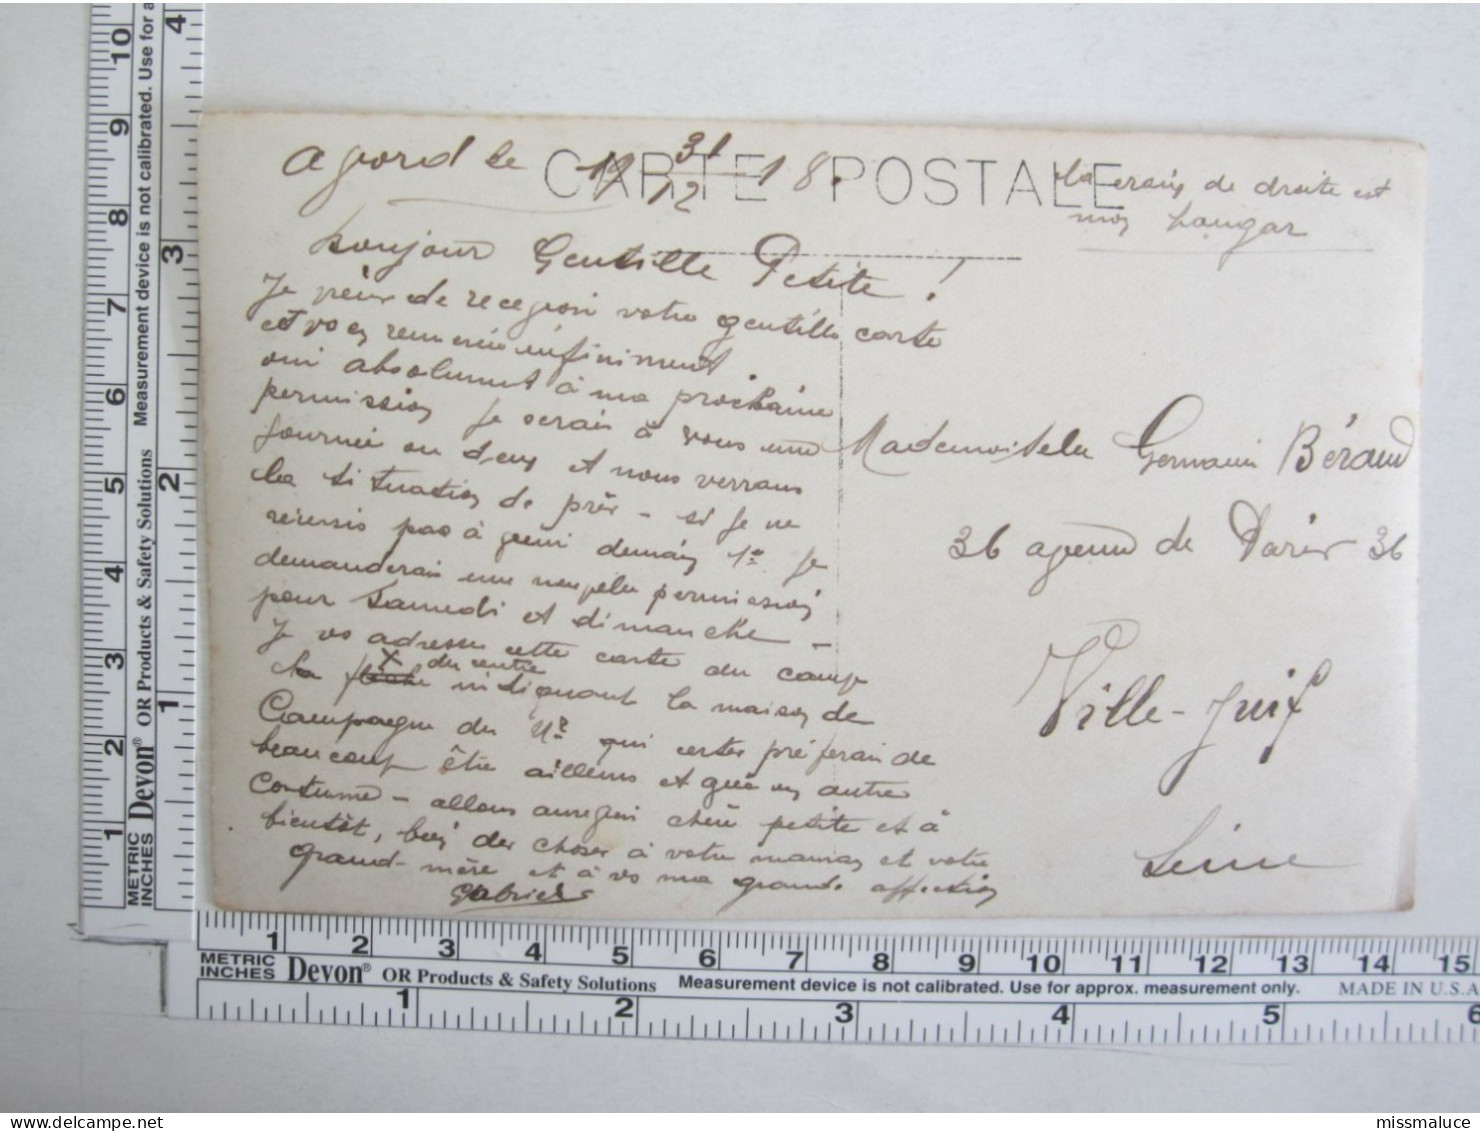 Avord le 19 31/12 18.
CARTE POSTALE
La croix de droite est
mon hangar
Bonjour Gentille Petite !
Je viens de recevoir votre gentille carte
et vs en remercie infiniment.
oui absolument à ma prochaine
permission je serais à vous une
journée ou deux et nous verrons
la situation de près - si je ne
réussis pas à venir demain 1er je
demanderais une nouvelle permission
pour Samedi et dimanche -
Je vs adresse cette carte du camp
X du centre
la flèche indiquant la maison de
Campagne du Mr qui certes préférerai de
beaucoup être ailleurs et que en autre
Costume - allons aurevoir chère petite et à
bientôt, bien des choses à votre maman et votre
grand-mère et à vs ma grande affection
Gabriel
Mademoiselle Germaine Béraud
36 avenue de Paris 36
Ville-Juif
Seine
10 9 8 7 6 5 4 3 2 1
4 3 2 1
METRIC
INCHES
Devon® OR Products & Safety Solutions Measurement device is not calibrated. Use for a
1 2 3 4 5 6 7 8 9 10 11 12 13 14 15
METRIC
INCHES
Devon® OR Products & Safety Solutions Measurement device is not calibrated. Use for approx. measurement only. MADE IN U.S.A
1 2 3 4 5 6
missmaluce